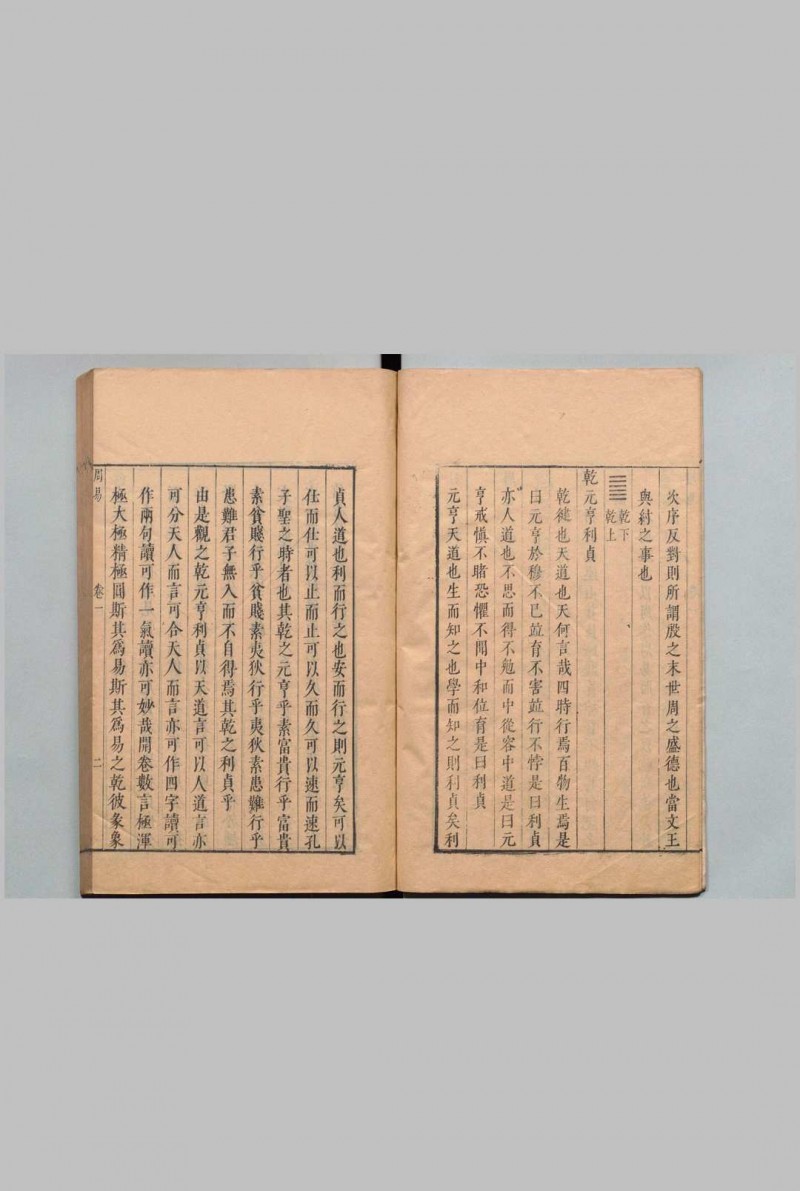 次序反對則所謂殷之末世周之盛德也當文王
與紂之事也
乾下
乾上
乾元亨利貞
乾健也天道也天何言哉四時行焉百物生焉是
曰元亨於穆不已竝育不害竝行不悖是曰利貞
亦人道也不思而得不勉而中從容中道是曰元
亨戒慎不睹恐懼不聞中和位育是曰利貞
元亨天道也生而知之也學而知之則利貞矣利
貞人道也利而行之也安而行之則元亨矣可以
仕而仕可以止而止可以久而久可以速而速孔
子聖之時者也其乾之元亨乎素富貴行乎富貴
素貧賤行乎貧賤素夷狄行乎夷狄素患難行乎
患難君子無入而不自得焉其乾之利貞乎
由是觀之乾元亨利貞以天道言可以人道言亦
可分天人而言可合天人而言亦可作四字讀可
作兩句讀可作一氣讀亦可妙哉開卷數言極渾
極大極精極圓斯其為易斯其為易之乾彼彖象
周易 卷一 二